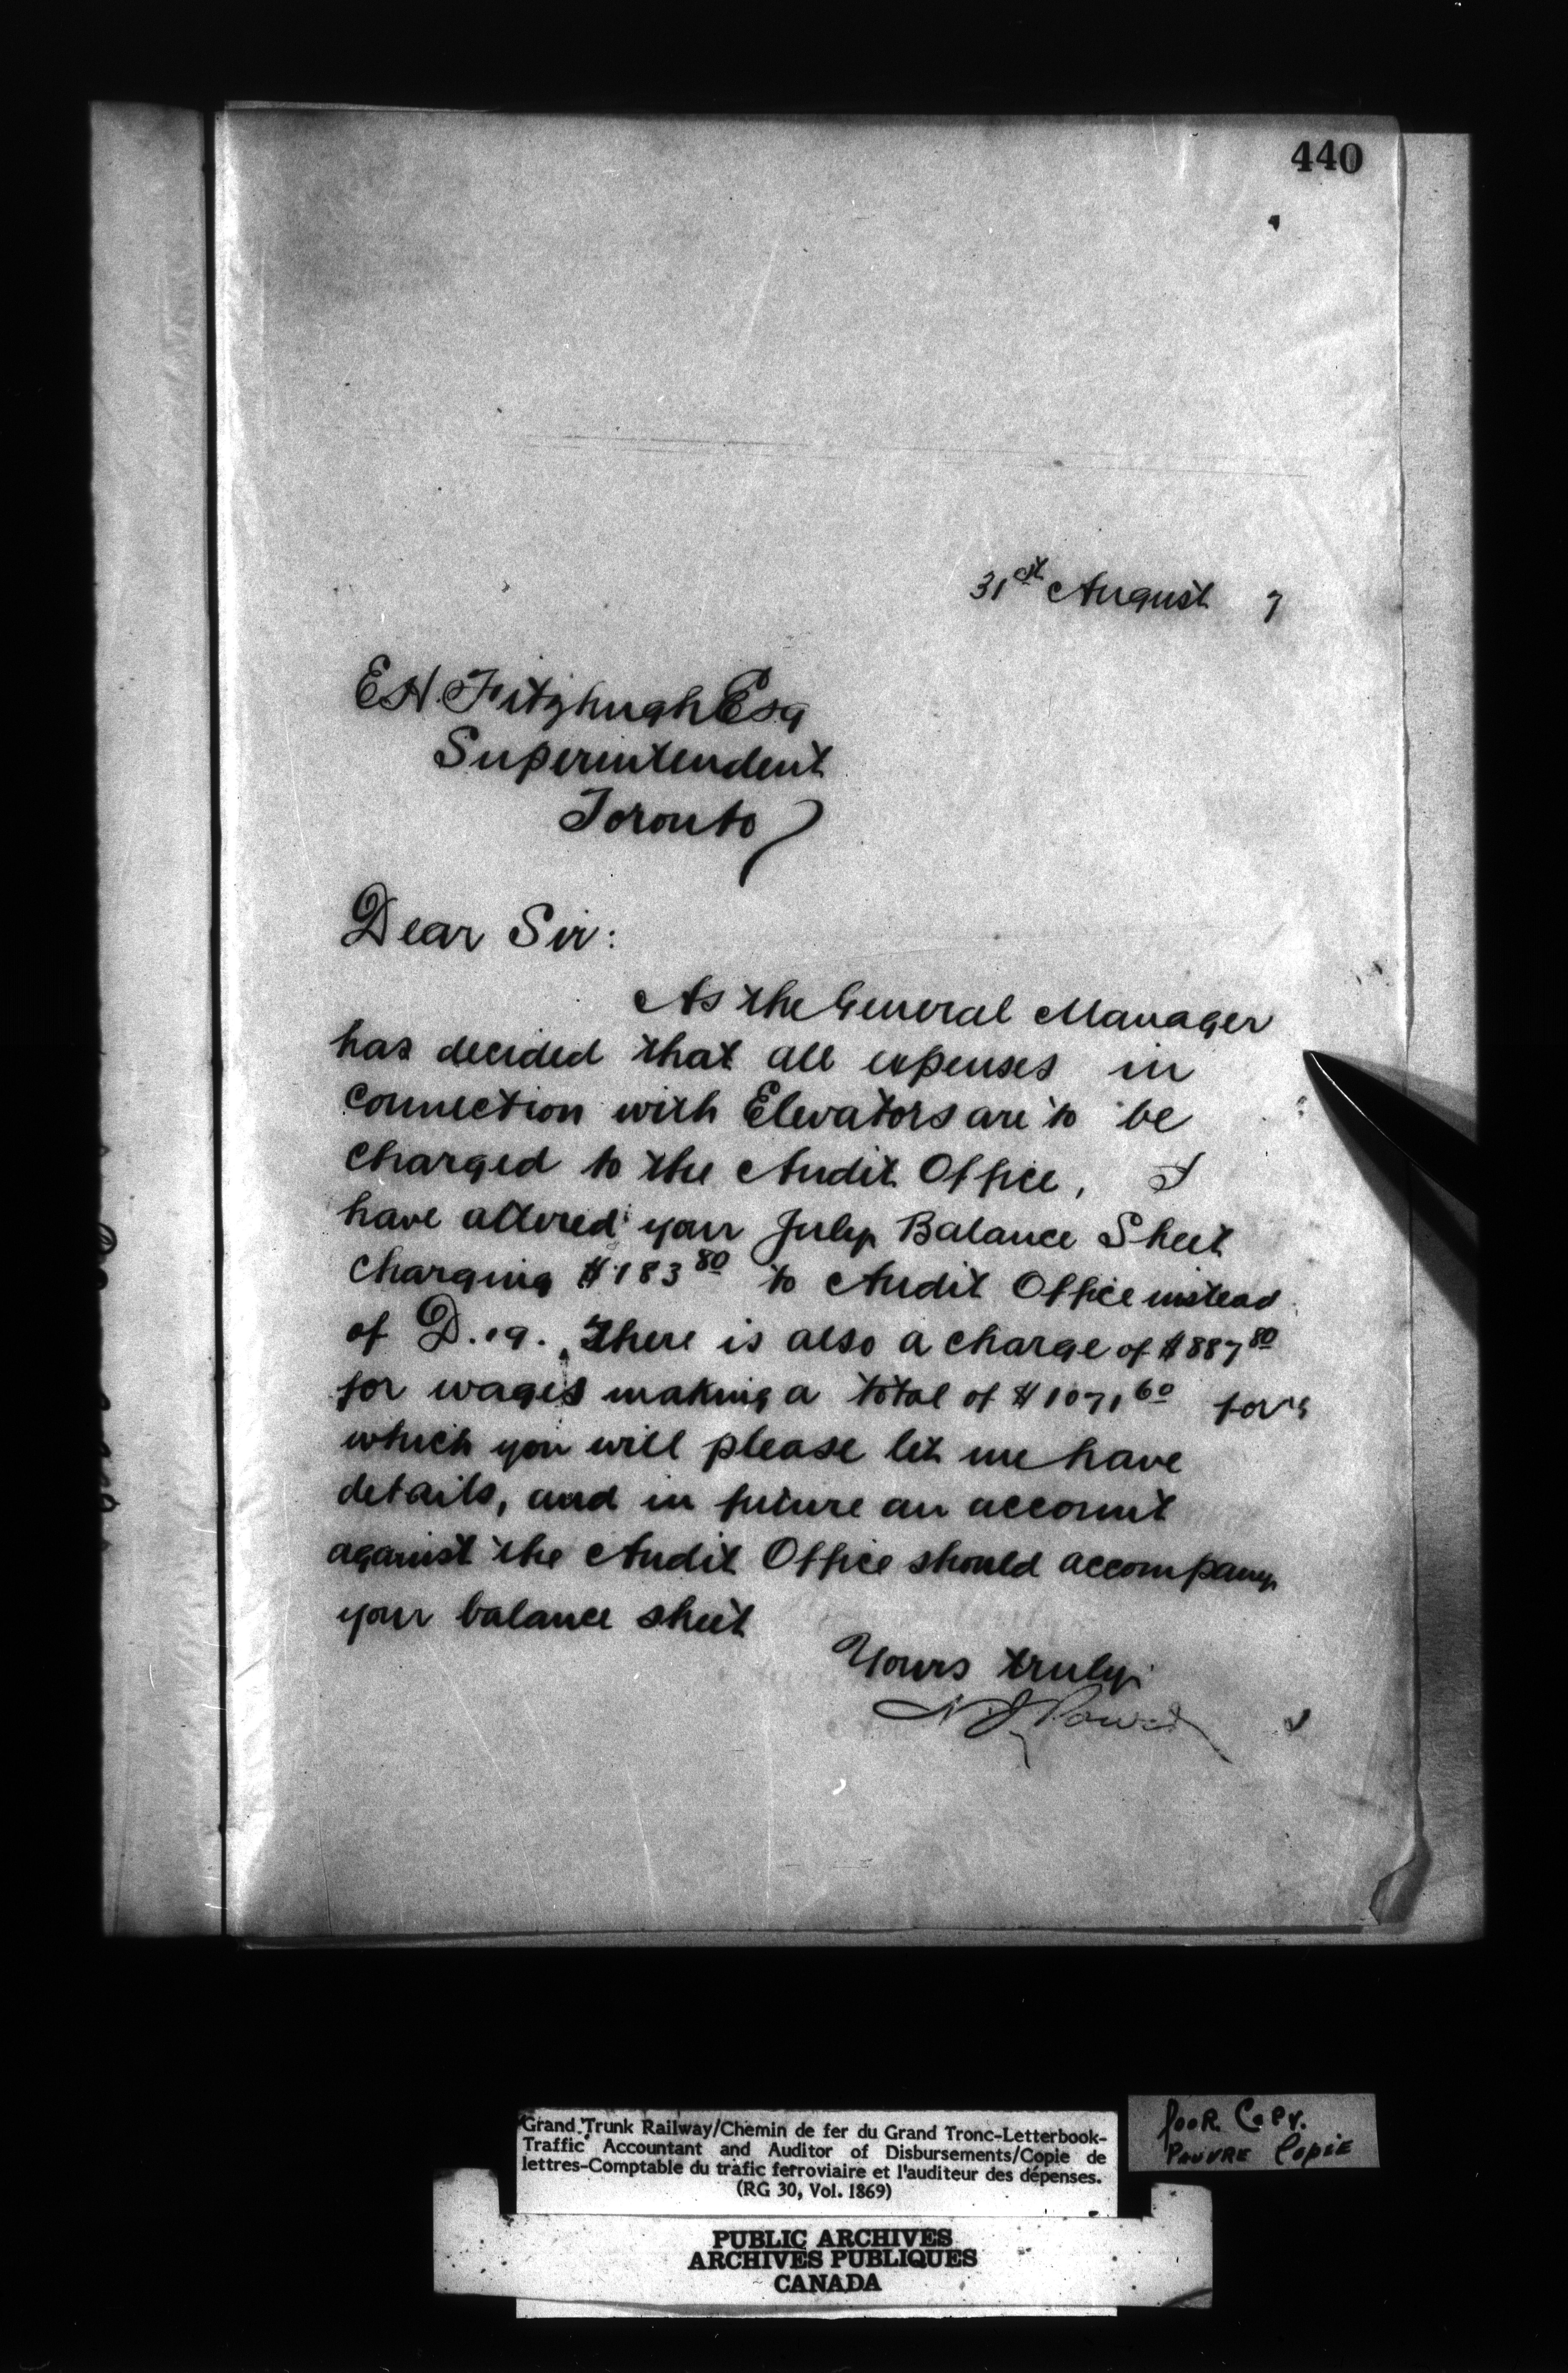 440
31st August 7
E H Fitzhugh Esq
Superintendent
Toronto
Dear Sir:
As the General Manager
has decided that all expenses in
connection with Elevators are to be
charged to the Audit Office, I
have altered your July Balance Sheet
charging $183 80 to Audit Office instead
of D.a. There is also a charge of $887 80
for wages making a total of $1071 60 for
which you will please let me have
details, and in future an account
against the Audit Office should accompany
your balance sheet
Yours truly
N J Power
Grand Trunk Railway/Chemin de fer du Grand Tronc-Letterbook-
Traffic Accountant and Auditor of Disbursements/Copie de
lettres-Comptable du trafic ferroviaire et l'auditeur des dépenses.
(RG 30, Vol. 1869)
Poor Copy.
Pauvre Copie
PUBLIC ARCHIVES
ARCHIVES PUBLIQUES
CANADA